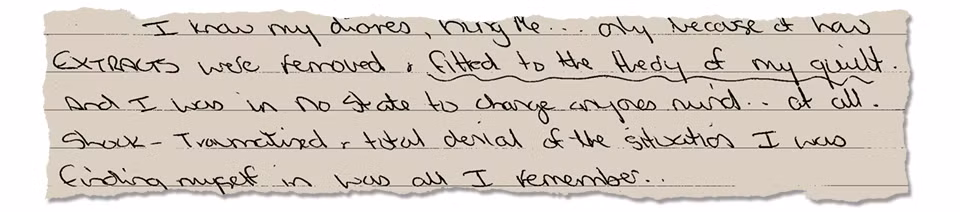 I know my diares, hung Me... only because of how
EXTRACTS were removed & fitted to the theory of my guilt.
And I was in no state to change anyones mind.. at all.
Shock - Traumatized & total denial of the situation I was
finding myself in was all I remember..